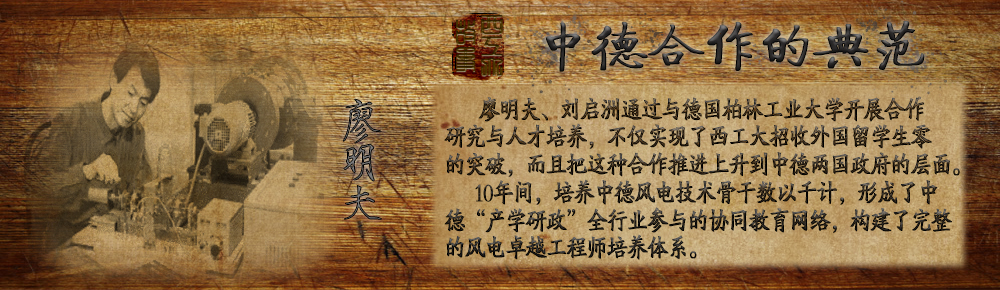 中德合作的典范
廖明夫
廖明夫、刘启洲通过与德国柏林工业大学开展合作
研究与人才培养，不仅实现了西工大招收外国留学生零
的突破，而且把这种合作推进上升到中德两国政府的层面。
10年间，培养中德风电技术骨干数以千计，形成了中
德“产学研政”全行业参与的协同教育网络，构建了完整
的风电卓越工程师培养体系。